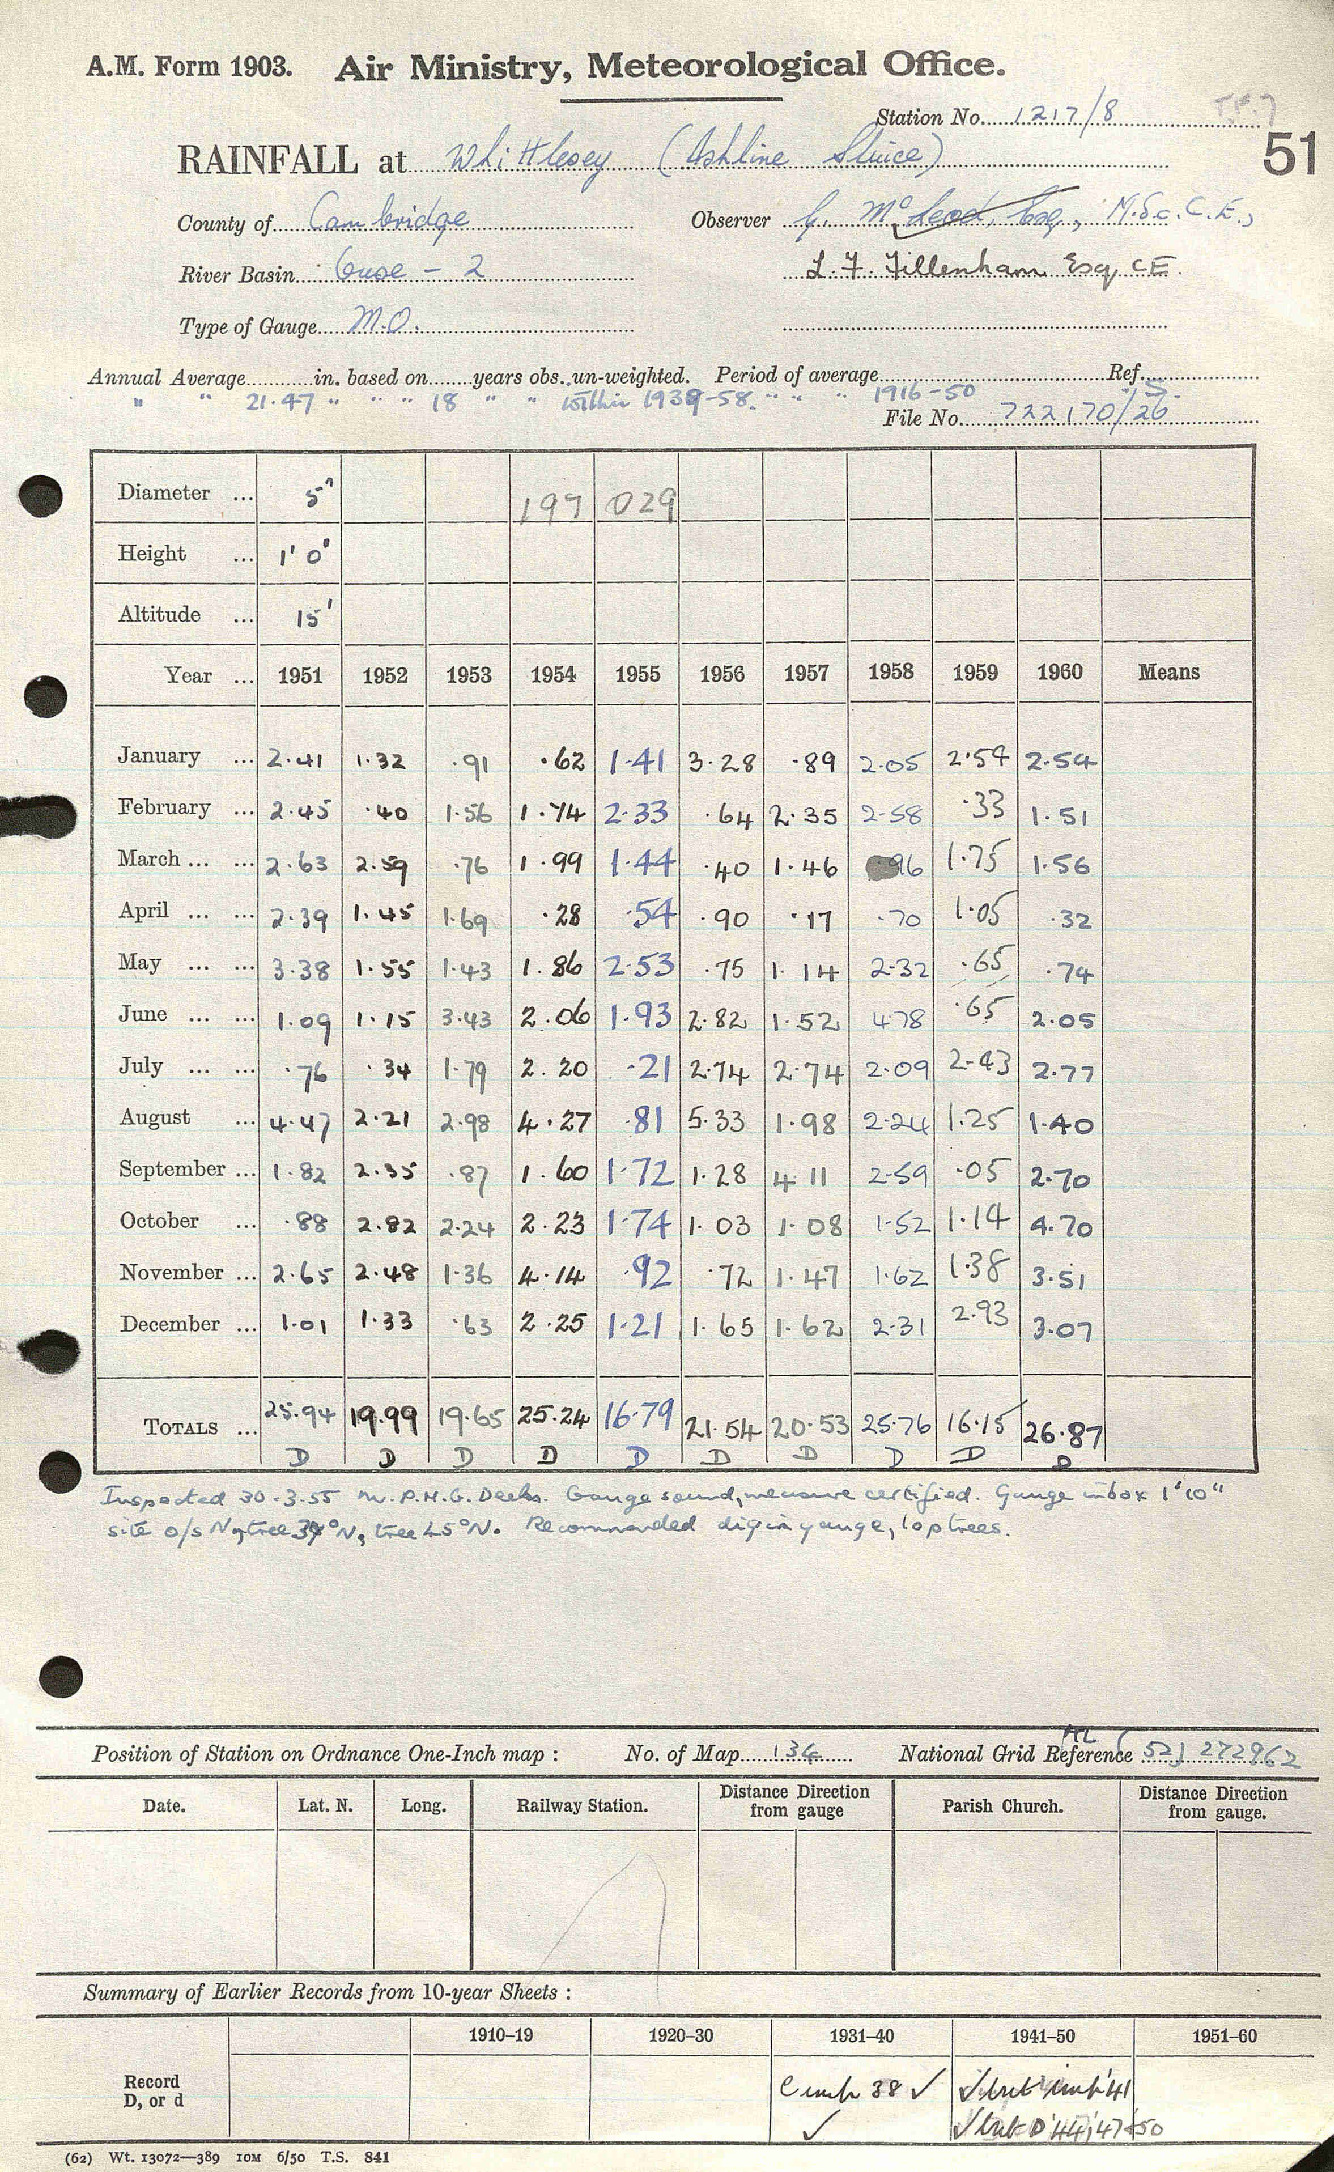 A.M. Form 1903. Air Ministry, Meteorological Office.
Station No. 1217/8 TF.7
51
RAINFALL at Whittlesey (Ashline Sluice)
County of Cambridge Observer G. McLeod, Esq., M.Sc. C.E.,
River Basin Ouse - 2 L. F. Fillenham Esq, CE.
Type of Gauge M.O.
Annual Average in. based on years obs. un-weighted. Period of average Ref.
" " 21.47 " " " 18 " " within 1939-58. " " " 1916-50
File No. 722170/26
Diameter ... 5" 197 029
Height ... 1' 0"
Altitude ... 15'
Year ... 1951 1952 1953 1954 1955 1956 1957 1958 1959 1960 Means
January ... 2.41 1.32 .91 .62 1.41 3.28 .89 2.05 2.54 2.54
February ... 2.45 .40 1.56 1.74 2.33 .64 2.35 2.58 .33 1.51
March ... ... 2.63 2.59 .76 1.99 1.44 .40 1.46 .96 1.75 1.56
April ... ... 2.39 1.45 1.69 .28 .54 .90 .17 .70 1.05 .32
May ... ... 3.38 1.55 1.43 1.86 2.53 .75 1.14 2.32 .65 .74
June ... ... 1.09 1.15 3.43 2.06 1.93 2.82 1.52 4.78 .65 2.05
July ... ... .76 .34 1.79 2.20 .21 2.74 2.74 2.09 2.43 2.77
August ... 4.47 2.21 2.98 4.27 .81 5.33 1.98 2.24 1.25 1.40
September ... 1.82 2.35 .87 1.60 1.72 1.28 4.11 2.59 .05 2.70
October ... .88 2.82 2.24 2.23 1.74 1.03 1.08 1.52 1.14 4.70
November ... 2.65 2.48 1.36 4.14 .92 .72 1.47 1.62 1.38 3.51
December ... 1.01 1.33 .63 2.25 1.21 1.65 1.62 2.31 2.93 3.07
TOTALS ... 25.94 19.99 19.65 25.24 16.79 21.54 20.53 25.76 16.15 26.87
D D D D D D D D D D
Inspected 30.3.55 Mr. P.H.G. Deeks. Gauge sound, measure certified. Gauge in box 1'10"
site o/s N, tree 39°N, tree 45°N. Recommended dig in gauge, lop trees.
Position of Station on Ordnance One-Inch map : No. of Map 134 National Grid Reference 52) 272962
Date. Lat. N. Long. Railway Station. Distance from gauge Direction Parish Church. Distance from gauge. Direction
Summary of Earlier Records from 10-year Sheets :
1910–19 1920–30 1931–40 1941–50 1951–60
Record D, or d
38 ✓
✓
(62) Wt. 13072—389 10M 6/50 T.S. 841